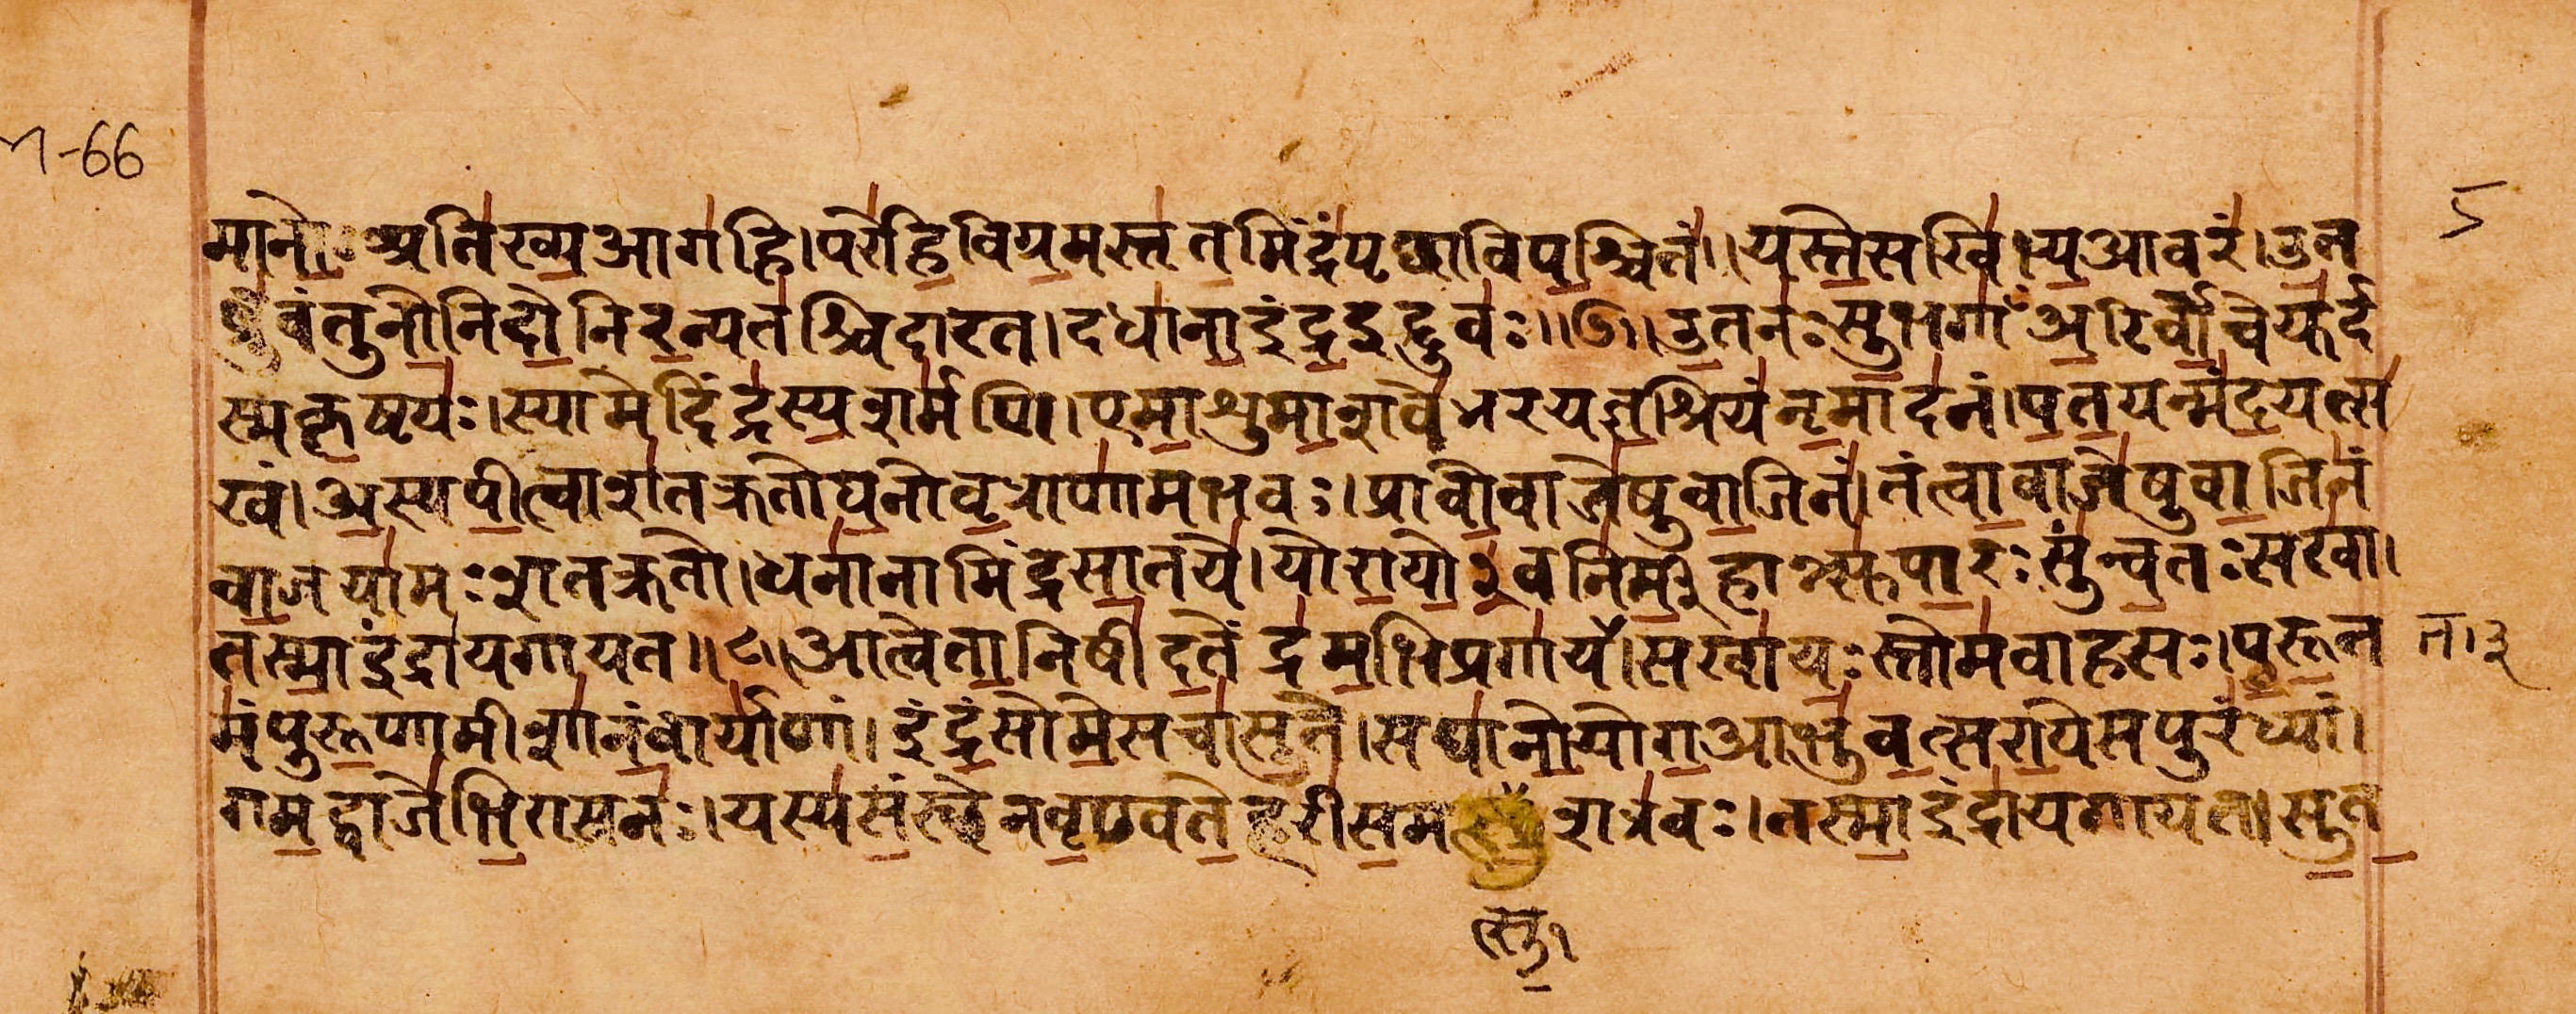 M-66
5
मानो॒ अति॑ख्य॒आग॑हि।परे॑हि॒विग्र॒मस्तृ॑त॒मिंद्रं॑पृछाविप॒श्चितं॑।।यस्ते॒सखि॑भ्य॒आवरं॑।उ॒त
ब्रु॑वंतुनो॒निदो॒निर॒न्यत॑श्चिदारत।दधा॑ना॒इंद्र॒इद्दुवः॑।।७।।उ॒तनः॑सु॒भगाँ॑अ॒रिर्वो॒चेयु॑र्द
स्मकृ॒ष्टयः॑।स्यामेदिंद्र॑स्य॒शर्म॑णि।एमा॒शुमा॒शवे॑भरयज्ञ॒श्रियं॑नृ॒माद॑नं।प॒त॒यन्मं॑द॒यत्स
खं॑।अ॒स्यपी॒त्वाश॑तक्रतोघ॒नोवृ॒त्राणा॑मभवः।प्रावो॒वाजे॑षुवा॒जिनं॑।तंत्वा॒वाजे॑षुवा॒जिनं॑
वा॒जया॑मःशतक्रतो।धना॑नामिंद्रसा॒तये॑।योरा॒यो॒३॒॑वनि॑र्म॒हान्त्सु॑पा॒रःसु॑न्व॒तःसखा॑।
तस्मा॒इंद्रा॑यगायत।।८।।आत्वेता॒निषी॑द॒तेंद्र॑म॒भिप्रगा॑यत।सखा॑यः॒स्तोम॑वाहसः।पु॒रू॒त
त। ३
मं॑पुरू॒णामीशा॑नं॒वार्या॑णां।इंद्रं॒सोमे॒सचा॑सु॒ते।सघा॑नो॒योग॒आभु॑व॒त्सरा॒येसपुरं॑ध्यां।
गम॒द्वाजे॑भि॒रासनः॑।यस्य॑सं॒स्थेनवृ॒ण्वते॒हरी॑स॒मत्सु॒शत्र॑वः।तस्मा॒इंद्रा॑यगायत।सु॒त
त्सु॒ १